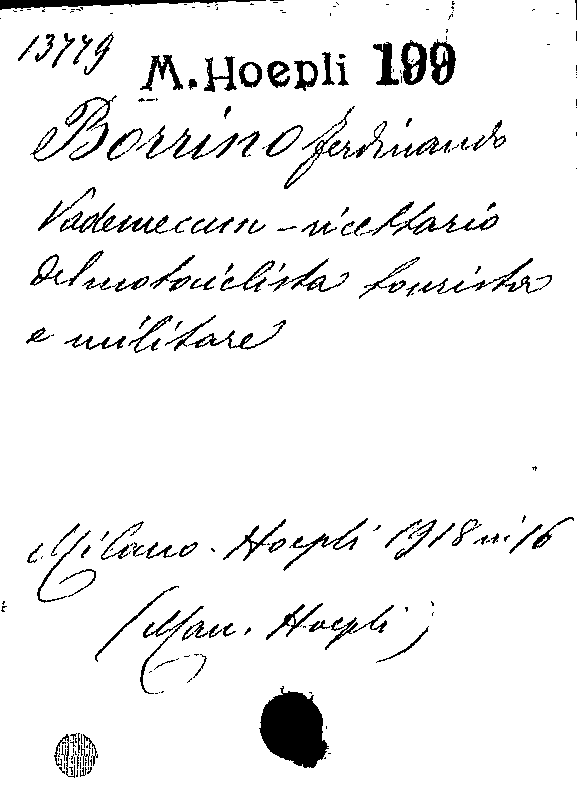 13779
M. Hoepli 199
Borrino Ferdinando
Vademecum - ricettario
del motociclista tourista
e militare
Milano. Hoepli 1918 in 16
(Man. Hoepli)